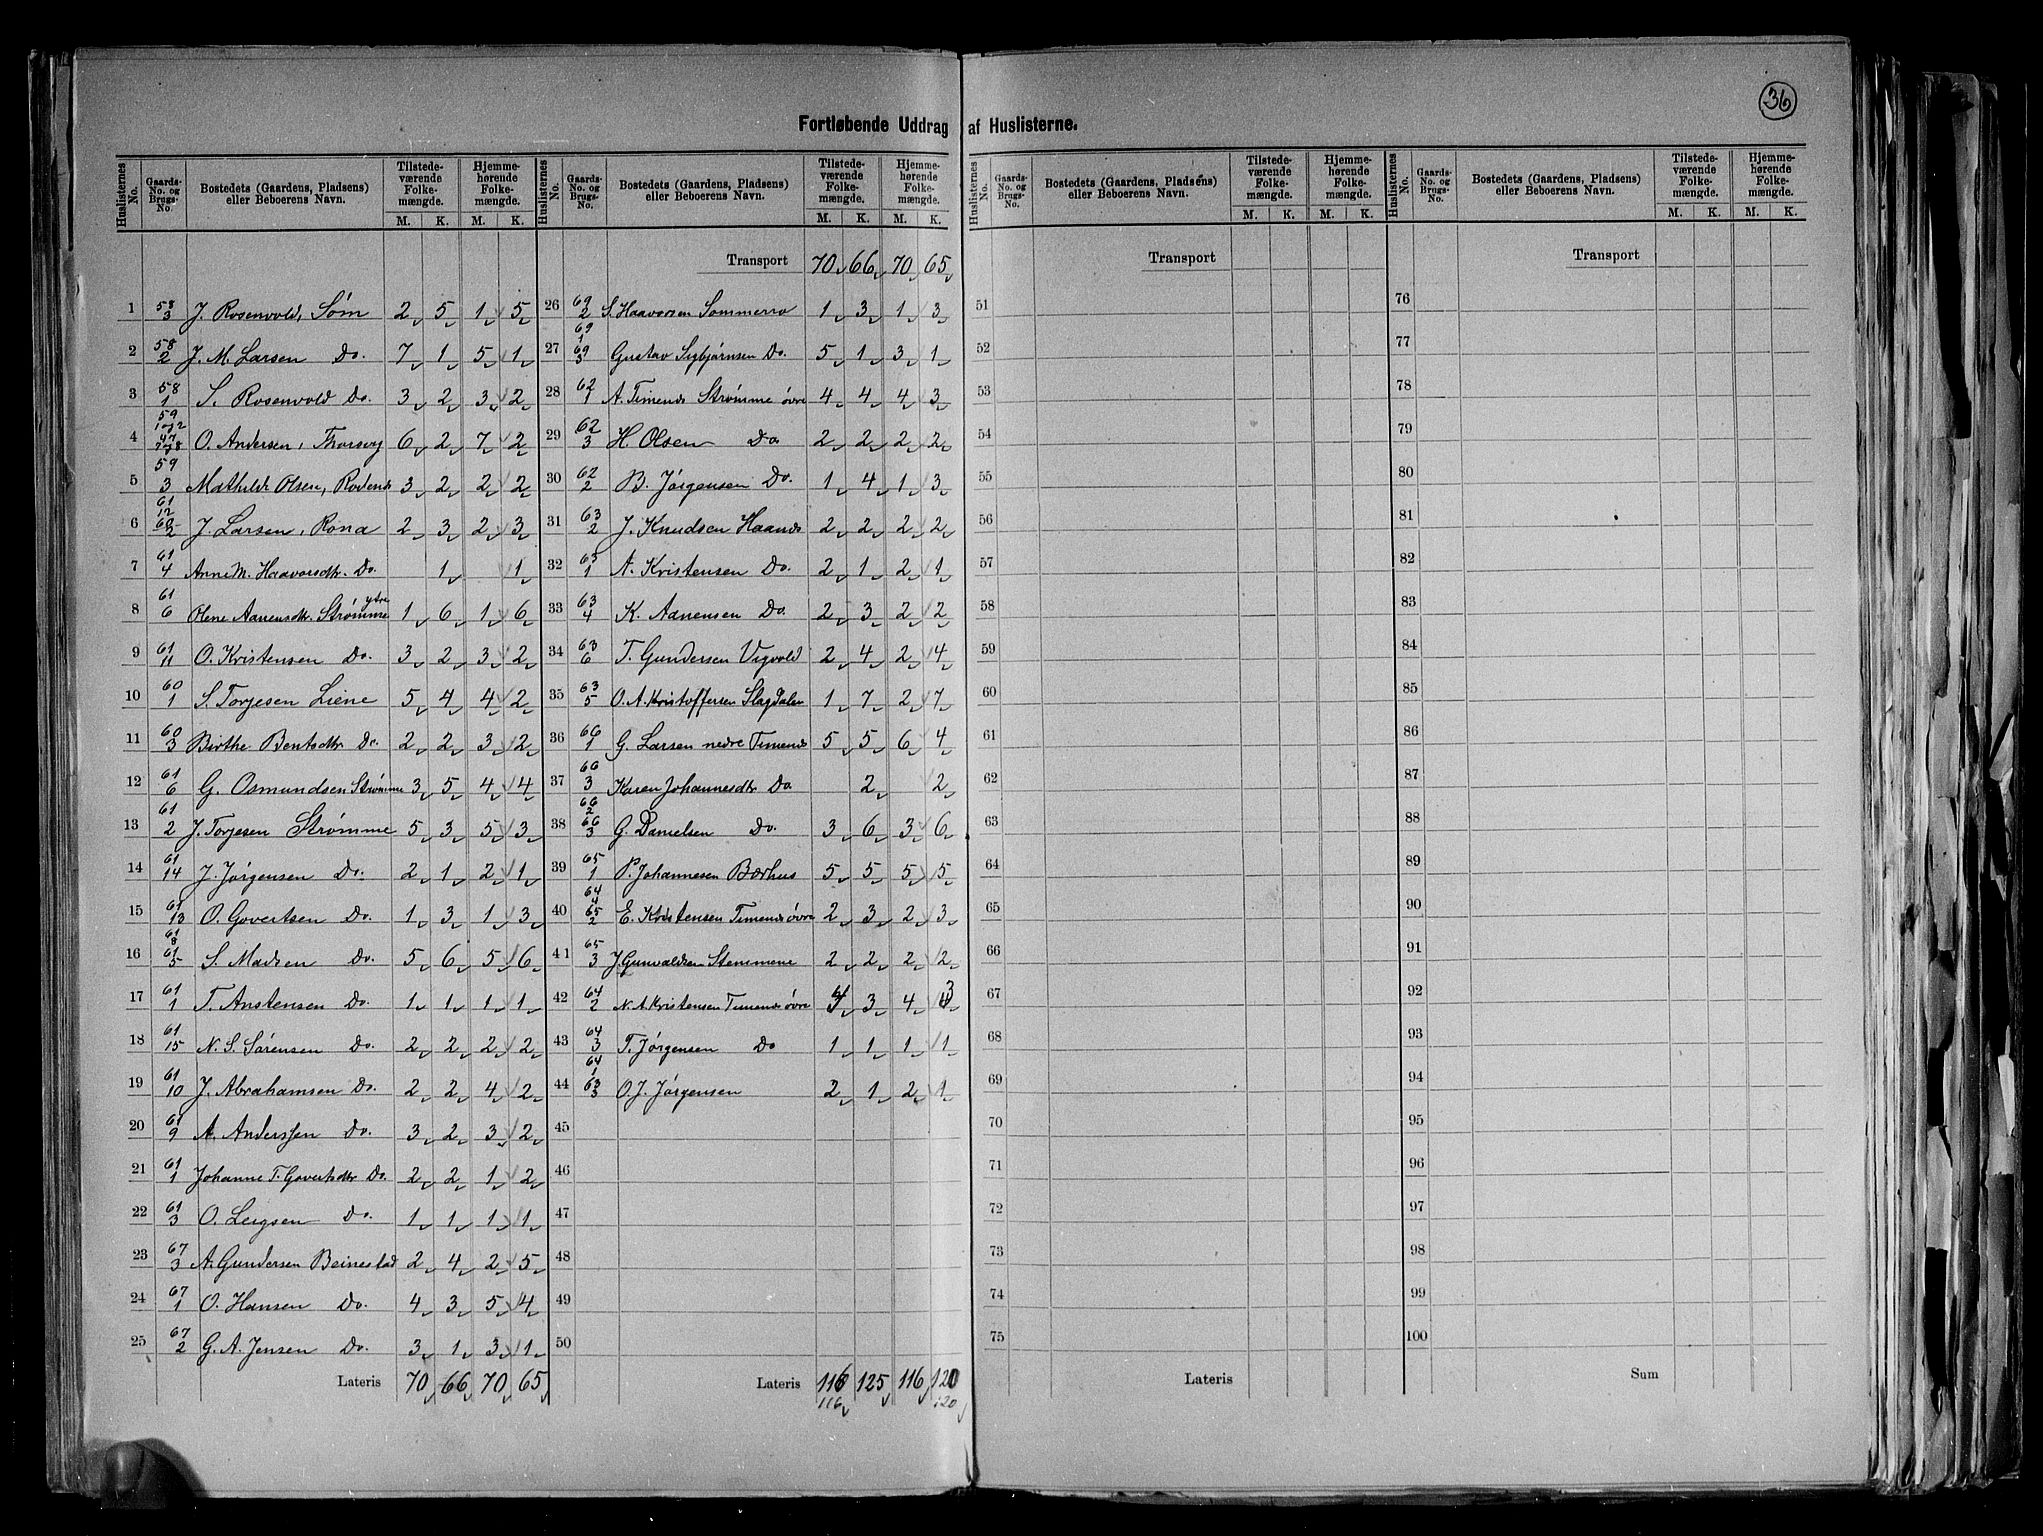 36
Fortløbende Uddrag af Huslisterne.
Huslisternes No. | Gaards-No. og Brugs-No. | Bostedets (Gaardens, Pladsens) eller Beboerens Navn. | Tilstedeværende Folkemængde. M. K. | Hjemmehørende Folkemængde. M. K.
1 58/3 J. Rosenvold, Søm 2 5 1 5
2 58/2 J. M. Larsen Do. 7 1 5 1
3 58/1 S. Rosenvold Do. 3 2 3 2
4 59/1 og 2 47/7 og 8 O. Andersen, Thorsvig 6 2 7 2
5 59/3 Mathilde Olsen, Rodenes 3 2 2 2
6 61/12 60/2 J. Larsen, Rona 2 3 2 3
7 61/4 Anne M. Haavorsdtr. Do. 1 1
8 61/6 Olene Aanensdtr. Strømme ytre 1 6 1 6
9 61/11 O. Kristensen Do. 3 2 3 2
10 60/1 S. Torjesen Liene 5 4 4 2
11 60/3 Birthe Bentsdtr Do. 2 2 3 2
12 61/6 G. Osmundsen Strømme 3 5 4 4
13 61/2 J. Torjesen Strømme 5 3 5 3
14 61/14 J. Jørgensen Do. 2 1 2 1
15 61/13 O. Govertsen Do. 1 3 1 3
16 61/8 61/5 S. Madsen Do. 5 6 5 6
17 61/1 T. Anstensen Do. 1 1 1 1
18 61/15 N. S. Sørensen Do. 2 2 2 2
19 61/10 J. Abrahamsen Do. 2 2 4 2
20 61/9 A. Anderssen Do. 3 2 3 2
21 61/1 Johanne T. Govertsdtr Do. 2 2 1 2
22 61/3 O. Leigsen Do. 1 1 1 1
23 67/3 A. Gundersen Beinestad 2 4 2 5
24 67/1 O. Hansen Do. 4 3 5 4
25 67/2 G. A. Jensen Do. 3 1 3 1
Lateris 70 66 70 65
Huslisternes No. | Gaards-No. og Brugs-No. | Bostedets (Gaardens, Pladsens) eller Beboerens Navn. | Tilstedeværende Folkemængde. M. K. | Hjemmehørende Folkemængde. M. K.
Transport 70 66 70 65
26 69/2 S. Haavorsen Sommerro 1 3 1 3
27 69/1 69/3 Gustav Sigbjørnsen Do. 5 1 3 1
28 62/1 A. Timenes Strømme øvre 4 4 4 3
29 62/3 H. Olsen Do 2 2 2 2
30 62/2 B. Jørgensen Do. 1 4 1 3
31 63/2 J. Knudsen Haanes 2 2 2 2
32 63/1 N. Kristensen Do. 2 1 2 1
33 63/4 K. Aanensen Do. 2 3 2 2
34 63/6 T. Gundersen Vigvold 2 4 2 4
35 63/5 O. A. Kristoffersen Slagdalen 1 7 2 7
36 66/1 G. Larsen nedre Timenes 5 5 6 4
37 66/3 Karen Johannesdtr Do 2 2
38 66/2 66/3 G. Danielsen Do. 3 6 3 6
39 65/1 P. Johannesen Bærhus 5 5 5 5
40 64/4 65/2 E. Kristensen Timenes øvre 2 3 2 3
41 65/3 J Gunvaldsen Stemmene 2 2 2 2
42 64/2 N. A. Kristensen Timenes øvre 4 3 4 3
43 64/3 T. Jørgensen Do 1 1 1 1
44 64/1 63/3 O. J. Jørgensen 2 1 2 1
45
46
47
48
49
50
Lateris 116 125 116 120
116 120
Huslisternes No. | Gaards-No. og Brugs-No. | Bostedets (Gaardens, Pladsens) eller Beboerens Navn. | Tilstedeværende Folkemængde. M. K. | Hjemmehørende Folkemængde. M. K.
Transport
51
52
53
54
55
56
57
58
59
60
61
62
63
64
65
66
67
68
69
70
71
72
73
74
75
Lateris
Huslisternes No. | Gaards-No. og Brugs-No. | Bostedets (Gaardens, Pladsens) eller Beboerens Navn. | Tilstedeværende Folkemængde. M. K. | Hjemmehørende Folkemængde. M. K.
Transport
76
77
78
79
80
81
82
83
84
85
86
87
88
89
90
91
92
93
94
95
96
97
98
99
100
Sum